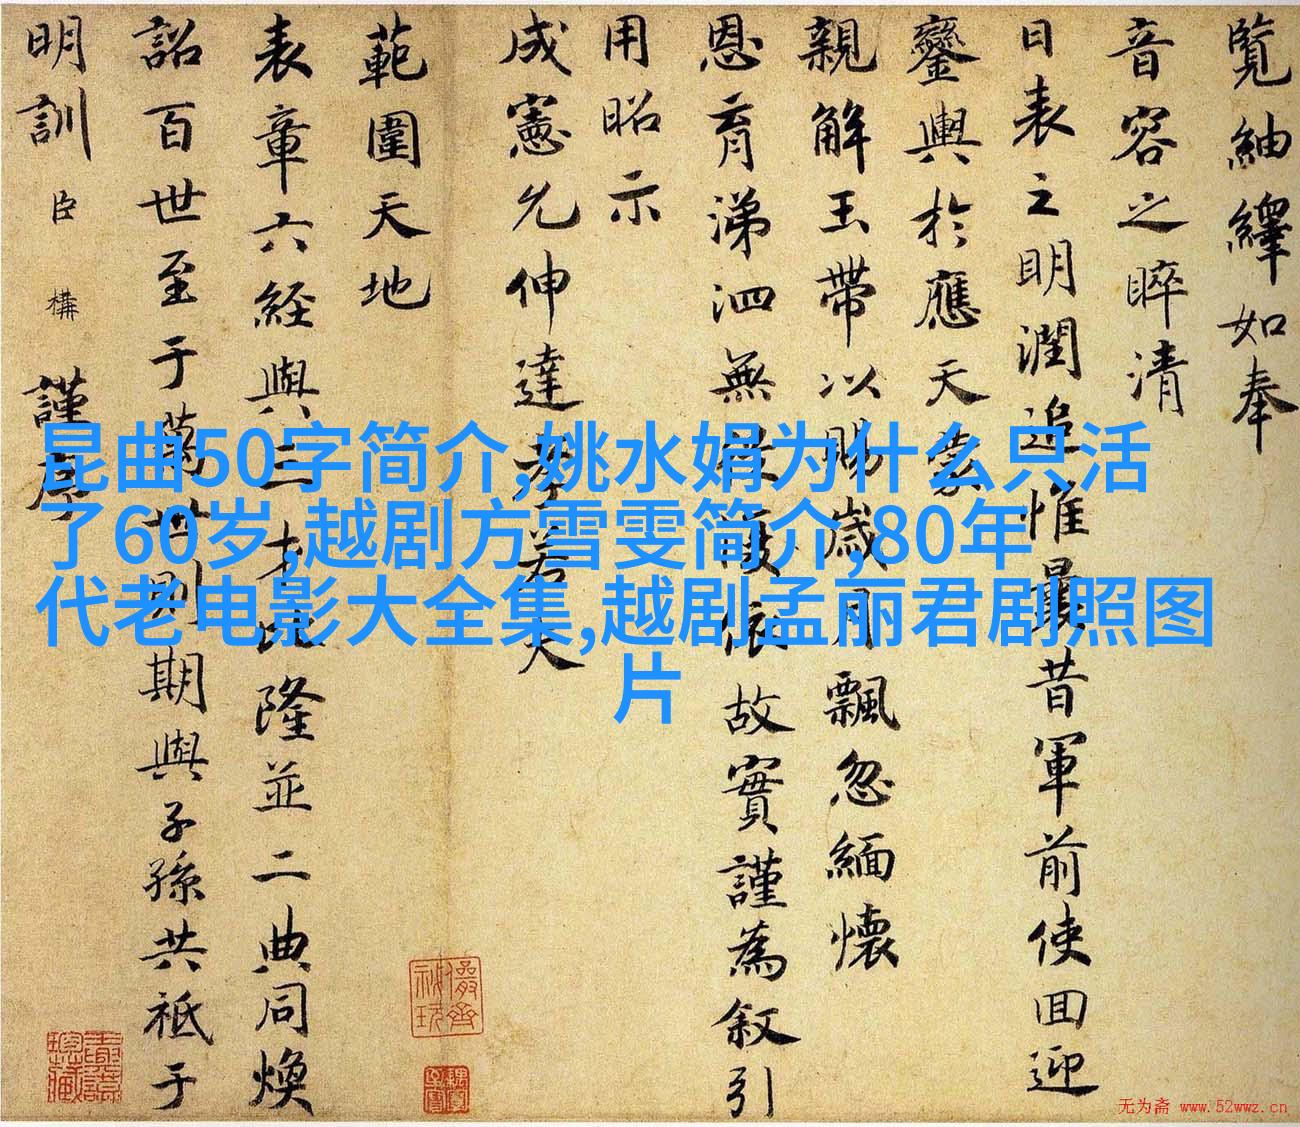 覽紬繹如奉
音容之睟清
日表之明潤追惟最昔軍前使回迎
鑾輿於應天蒙
親解玉帶以賜歲月飄忽緬懷
恩育涕泗無報瞻依故實謹為叙引
用昭示
成憲允伸達孝若夫
範圍天地
表章六經與三才比隆並二典同煥
詔百世至于萬世則期與子孫共祇于
明訓臣構謹序
昆曲50字简介,姚水娟为什么只活
了60岁,越剧方雪雯简介,80年
代老电影大全集,越剧孟丽君剧照图
片
无为斋 www.52wwz.cn